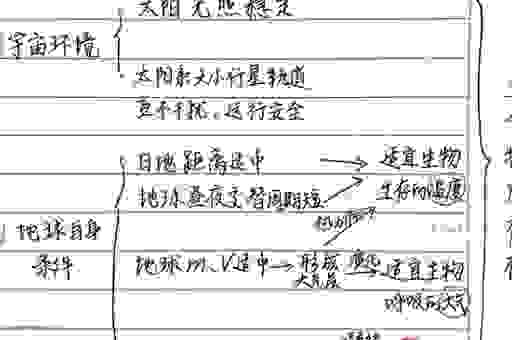 太阳光照稳定
宇宙环境
太阳系大小行星轨道
互不干扰，运行安全
日地距离适中 → 适宜生物
地球昼夜交替周期短 生存的温度
地球自身
条件
地球m、V适中 → 形成 演化 → 适宜生物
大气层
呼吸的大气